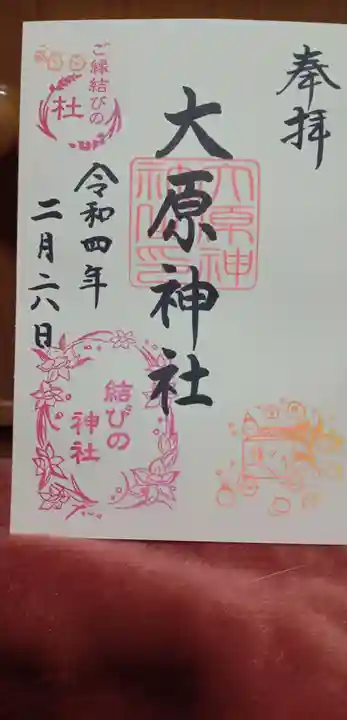 奉拝
大原神社
大原神
神社印
令和四年
二月二六日
ご縁結びの
杜
結びの
神社